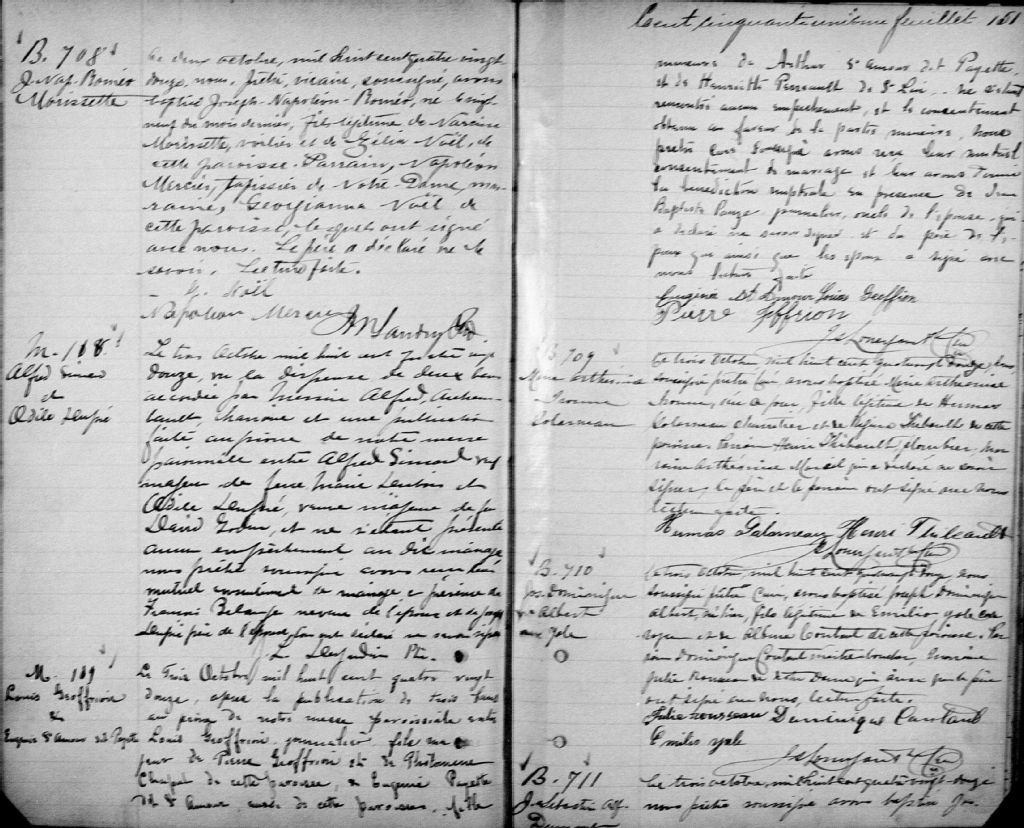 B. 708
J. Nap. Roméo
Morissette
Le deux octobre, mil huit cent quatre vingt
douze, nous, prêtre, vicaire, soussigné, avons
baptisé Joseph-Napoléon-Roméo, né vingt
neuf du mois dernier, fils légitime de Narcisse
Morissette, voilier et de Exilia Noël, de
cette paroisse. Parrain, Napoléon
Mercier, tapissier de Notre-Dame, mar-
raine, Georgianna Noël de
cette paroisse, lesquels ont signé
avec nous. Le père a déclaré ne le
savoir. Lecture faite.
G. Noël
Napoléon Mercier
Landry Ptr.
M. 108
Alfred Simard
&
Odile Dupré
Le trois Octobre mil huit cent quatre vingt
douze, vu la dispense de deux bans
accordée par Messire Alfred Archam-
bault, chanoine et une publication
faite au prone de notre messe
paroissiale entre Alfred Simard veuf
majeur de feue Marie et
Odile Dupré, veuve majeure de feu
David et ne s'étant présenté
aucun empêchement au dit mariage
nous prêtre soussigné avons reçu leur
mutuel consentement de mariage en présence de
François Belanger neveu de l'époux et de
Dupré père de l'épouse, qui ont déclaré ne savoir signer
L. Desjardin Ptr.
M. 109
Louis Geoffrion
&
Eugenie St Amour dit Payette
Le Trois Octobre mil huit cent quatre vingt
douze, après la publication de trois bans
au prône de notre messe paroissiale entre
Louis Geoffrion journalier, fils ma-
jeur de Pierre Geoffrion et de Philomène
Chaput de cette paroisse, & Eugenie Payette
dit St Amour aussi de cette paroisse, fille
Cent cinquante unième feuillet 151
mineure de Arthur St Amour dit Payette
et de Henriette Perreault de St Lin. Ne s'étant
rencontré aucun empêchement, et le consentement
obtenu en faveur de la partie mineure, nous
prêtre curé soussigné avons reçu leur mutuel
consentement de mariage et leur avons donné
la bénédiction nuptiale en présence de Jean
Baptiste Pauzé journalier, oncle de l'épouse, qui
a déclaré ne savoir signer et du père de l'é-
poux qui ainsi que les époux a signé avec
nous lecture faite
Eugénie St Amour Louis Geoffrion
Pierre Jeffrion
Js Lonergan Ptr Curé
B 709
Marie Arthémise
Ivonne
Galarneau
Le trois Octobre mil huit cent quatre vingt douze, nous
soussigné prêtre Curé avons baptisé Marie Arthémise
Ivonne, née ce jour, fille légitime de Hermas
Galarneau charretier et de Thibault de cette
paroisse. Parrain Henri Thibeault plombier, mar-
raine Arthémise Marcil qui a déclaré ne savoir
signer, le père et le parrain ont signé avec nous
lecture faite.
Hermas Galarneau Henri Thibeault
Js Lonergan Ptr Curé
B. 710
Jos. Dominique
Albert
Yole
Le trois Octobre, mil huit cent quatre vingt douze, nous
soussigné prêtre Curé, avons baptisé Joseph Dominique
Albert, né hier, fils légitime de Emilio Yole
et de Albina Contant de cette paroisse. Par-
rain Dominique Contant maître boucher, marraine
Julie Rousseau de Notre Dame qui ainsi que le père
ont signé avec nous, lecture faite.
Julie rousseau Dominique Contant
Emiles yole
Js Lonergan Ptr Curé
B. 711
J. Sébastien Alf.
Le trois octobre, mil huit cent quatre vingt douze
nous prêtre soussigné avons baptisé Jos.